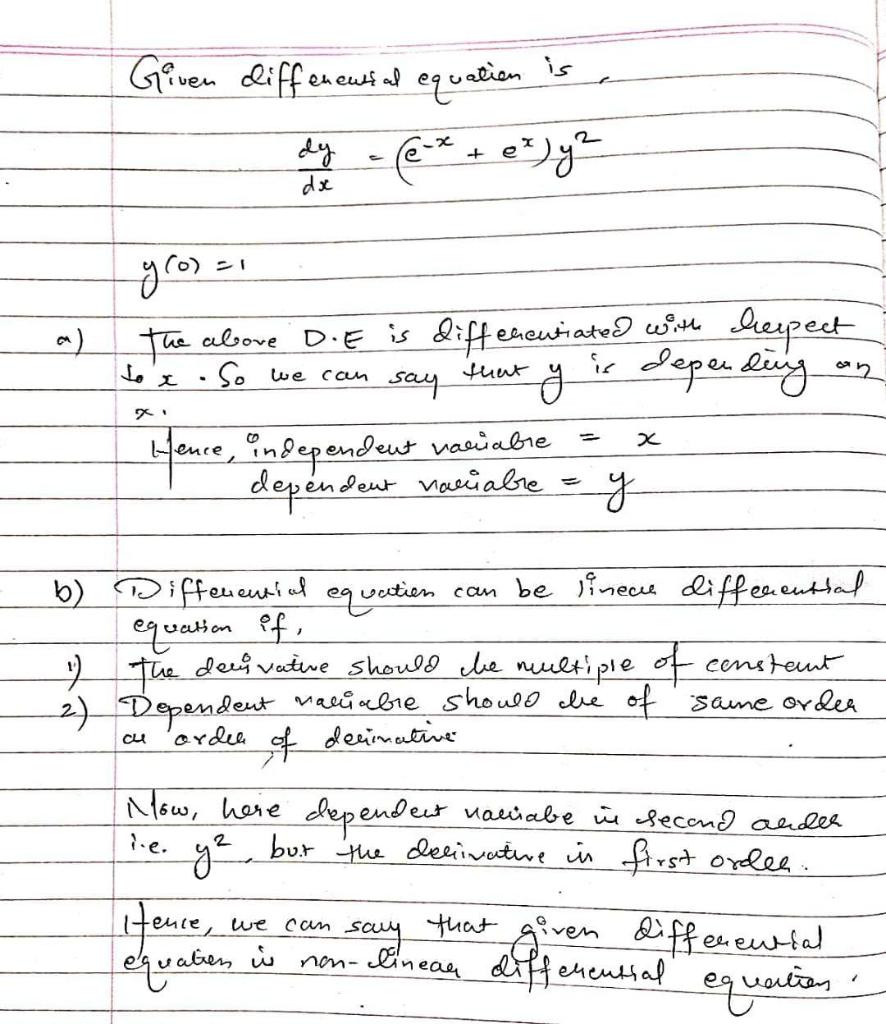 Given differential equation is,
dy/dx = (e^-x + e^x) y^2
y(0) = 1
a) The above D.E is differentiated with respect
to x. So we can say that y is depending on
x.
Hence, independent variable = x
dependent variable = y
b) Differential equation can be linear differential
equation if,
1) The derivative should be multiple of constant
2) Dependent variable should be of same order
as order of derivative
Now, here dependent variabe is second order
i.e. y^2, but the derivative is first order.
Hence, we can say that given differential
equation is non-linear differential equation.